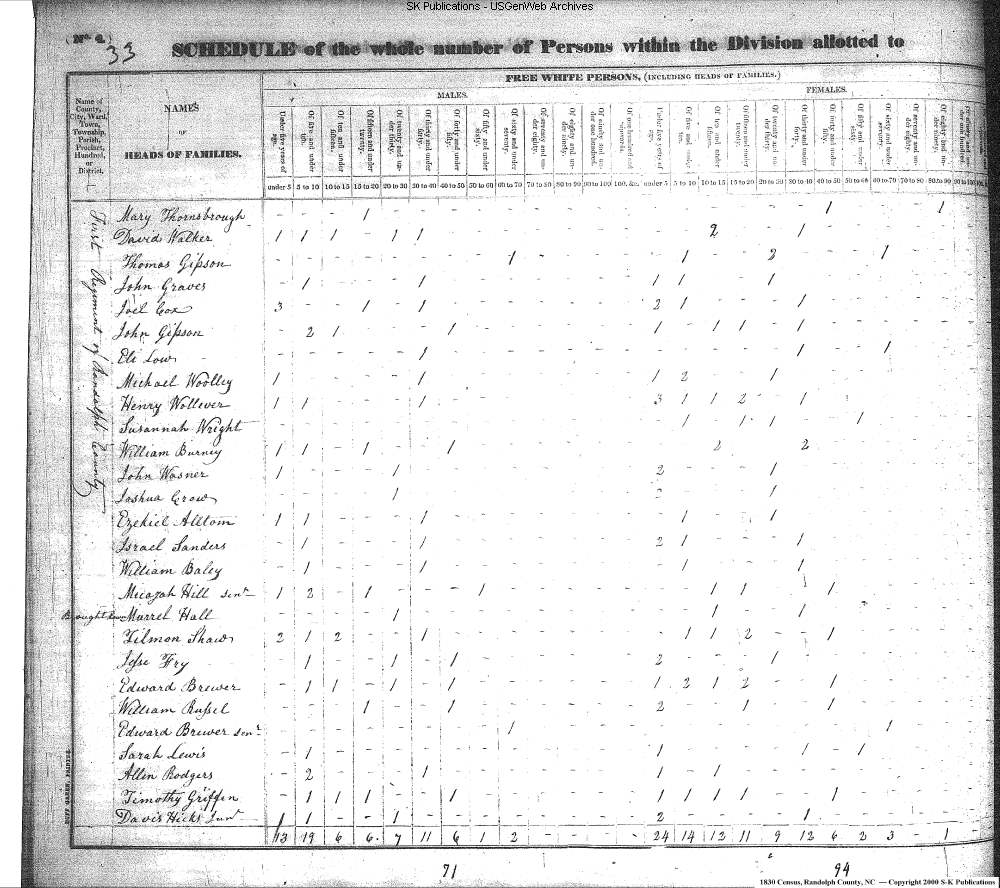 SK Publications - USGenWeb Archives
(No. 4.) 33
SCHEDULE of the whole number of Persons within the Division allotted to
FREE WHITE PERSONS, (INCLUDING HEADS OF FAMILIES.)
MALES. FEMALES.
Name of County, City, Ward, Town, Township, Parish, Precinct, Hundred, or District.
NAMES
OF
HEADS OF FAMILIES.
under 5 5 to 10 10 to 15 15 to 20 20 to 30 30 to 40 40 to 50 50 to 60 60 to 70 70 to 80 80 to 90 90 to 100 100, &c. under 5 5 to 10 10 to 15 15 to 20 20 to 30 30 to 40 40 to 50 50 to 60 60 to 70 70 to 80 80 to 90 90 to 100
First Regiment of Randolph County
Mary Thornsbrough 1 1 1
David Walker 1 1 1 - 1 1 2 1
Thomas Gipson 1 1 2 1
John Graves 1 1 1 1 1
Joel Cox 3 1 1 2 1 1
John Gipson 2 1 1 1 1 1 1
Eli Low 1 1 1
Michael Woolley 1 1 1 2 1
Henry Wollever 1 1 1 3 1 1 2 1
Susannah Wright 1 1 1 1
William Burney 1 1 1 1 2 2
John Wosner 1 1 2 1
Joshua Crow 1 2 1
Ezekiel Alltom 1 1 1 1 1
Israel Sanders 1 1 2 1 1
William Baley 1 1 1 1
Micazah Hill senr 1 2 1 1 1 1 1
Murrel Hall 1 1 1
Tilmon Shaw 2 1 2 1 1 1 2 1
Jesse Fry 1 1 1 2 1
Edward Brewer 1 1 1 1 1 2 1 2 1
William Russel 1 1 2 1 1
Edward Brewer senr 1 1
Sarah Lewis 1 1 1 1
Allin Rodgers 2 1 1 1
Timothy Griffin 1 1 1 1 1 1 1 1 1
Davis Hicks Junr 1 1 1 2 1
13 19 6 6 7 11 6 1 2 24 14 12 11 9 12 6 2 3 - 1
71 94
1830 Census, Randolph County, NC — Copyright 2000 S-K Publications